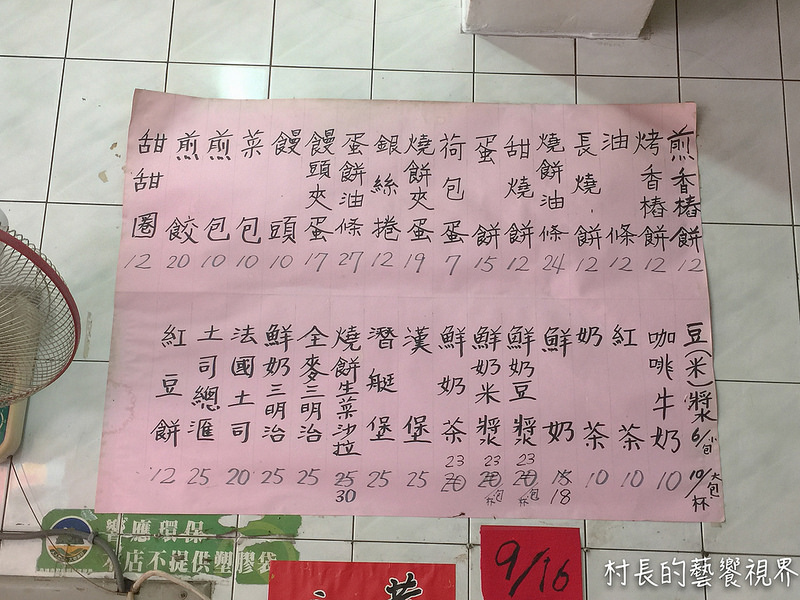 煎香椿餅 12
烤香椿餅 12
油條 12
長燒餅 12
燒餅油條 24
甜燒餅 12
蛋餅 15
荷包蛋 7
燒餅夾蛋 19
銀絲捲 12
蛋餅油條 27
饅頭夾蛋 17
饅頭 10
菜包 10
煎包 10
煎餃 20
甜甜圈 12
豆(米)漿 6/小包 10/大包 杯
咖啡牛奶 10
紅茶 10
奶茶 10
鮮奶 18 18
鮮奶豆漿 23 20 杯包
鮮奶米漿 23 20 杯包
鮮奶茶 23 20
漢堡 25
潛艇堡 25
燒餅生菜沙拉 25 30
全麥三明治 25
鮮奶三明治 25
法國土司 20
土司總滙 25
紅豆餅 12
響應環保
本店不提供塑膠袋
9/16
村長的藝饗視界